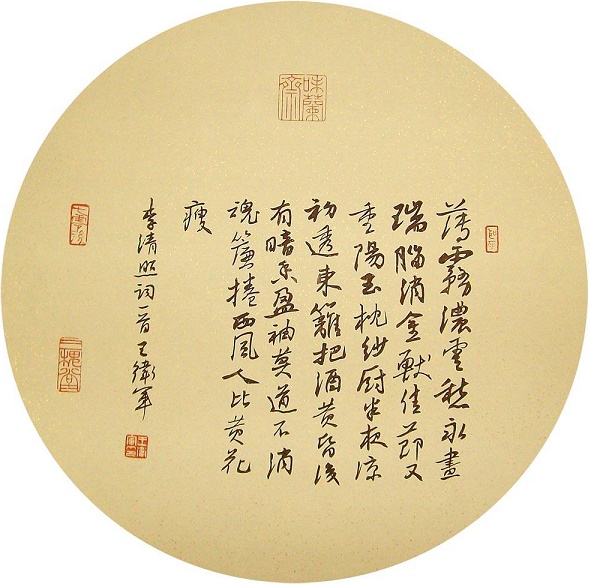 味蘭齋
薄霧濃雲愁永晝
瑞腦消金獸佳節又
重陽玉枕紗厨半夜涼
初透東籬把酒黃昏後
有暗香盈袖莫道不消
魂簾捲西風人比黃花
瘦
李清照詞一首王衛軍
三槐堂